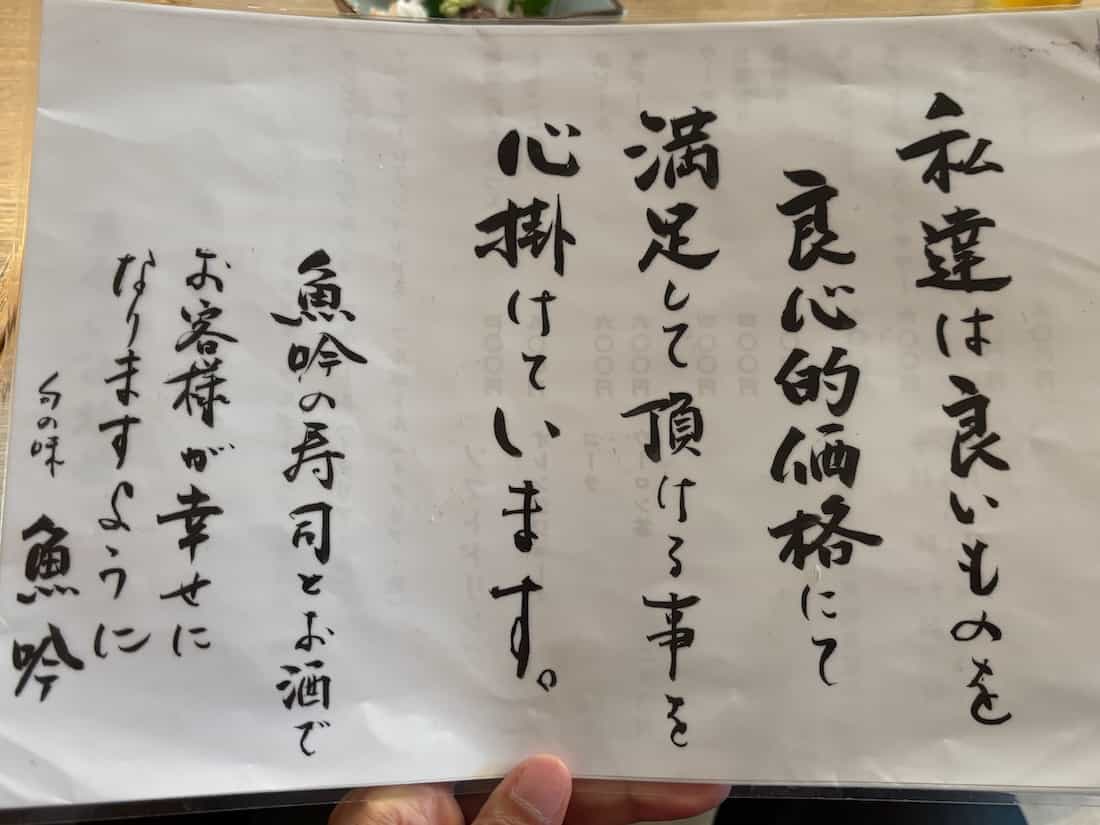 私達は良いものを
良心的価格にて
満足して頂ける事を
心掛けています。
魚吟の寿司とお酒で
お客様が幸せに
なりますように
旬の味 魚吟